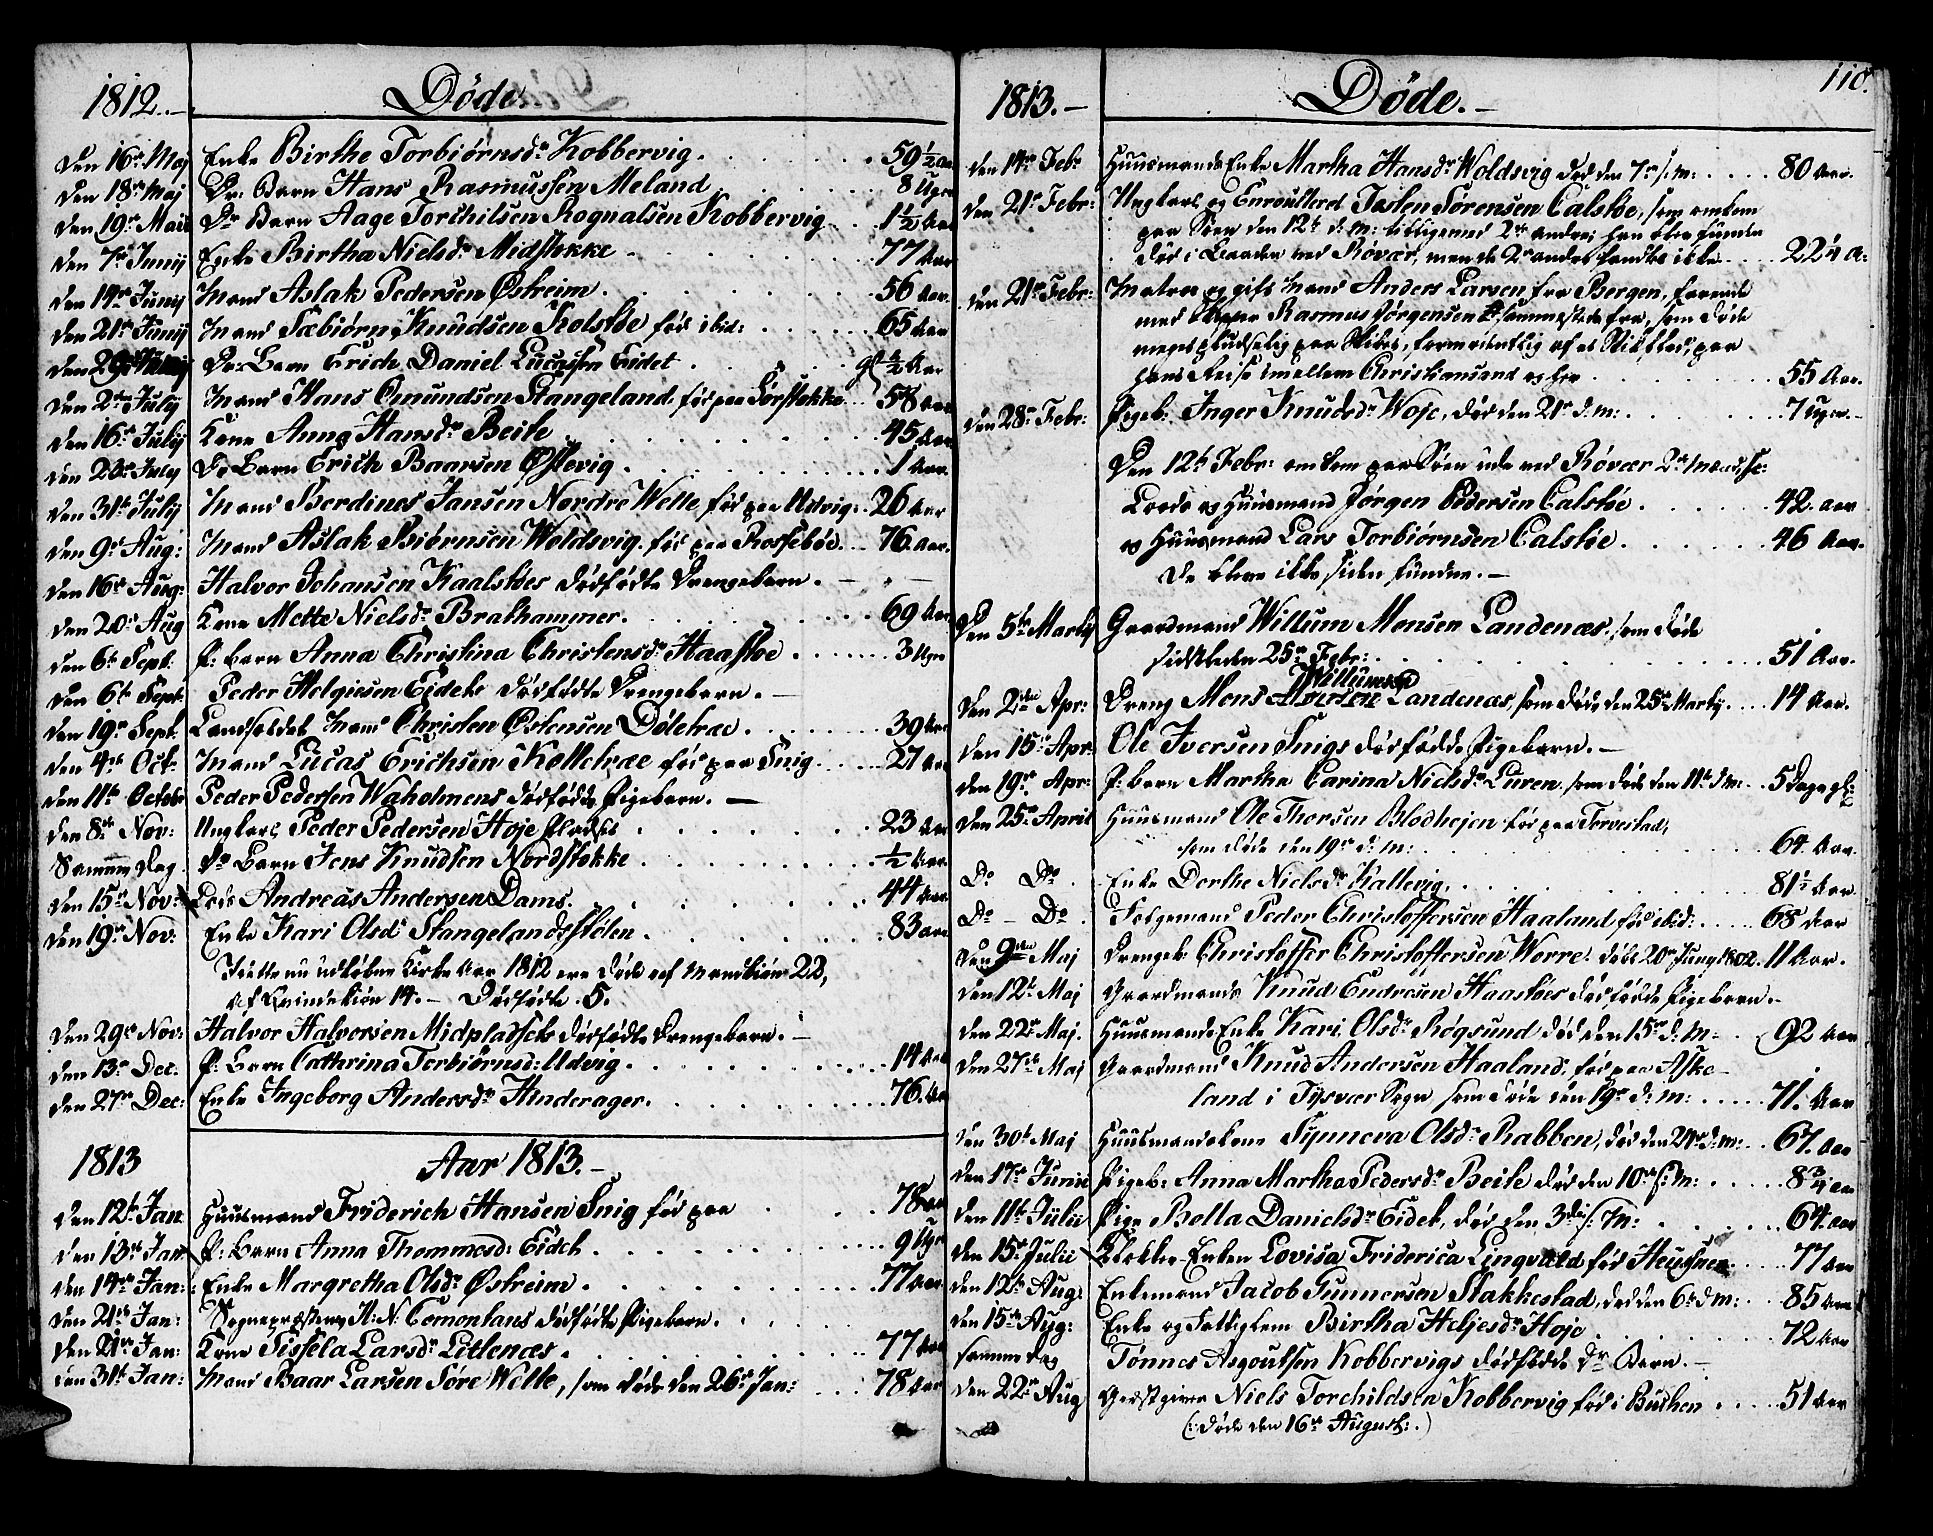 1812.- Døde.
Den 16de Maj Enke Birthe Torbiørnsdr Kobbervig. 59½ Aar
Den 18de Maj Dr: Barn Hans Rasmussen Meland 8 Uger
Den 19de Maii Dr Barn Aage Torchilsen Rognalsen Kobbervig 1½ Aar
Den 7de Junij Enke Birtha Nielsdr Midstokke 77 Aar
Den 14de Junij Mand Aslak Pedersen Østreim 56 Aar.
Den 21de Junij Mand Sæbiørn Knudsen Kolstøe fød ibid: 65 Aar
Den Dr: Barn Erich Daniel Lucassen Eidet ½ Aar
Den 2den July Mand Hans Omundsen Stangeland fød paa Sørstokke 58 Aar
Den 16de July Kone Anna Hansdr Beite 45 Aar
Den 28de July Dr Barn Erich Baarsen Østevig 1 Aar.
Den 31te July Mand Berdines Jansen Nordre Welle fød paa Udvig: 26 Aar
Den 9de Aug: Mand Aslak Biørnsen Woldsvig. fød paa Rossebøe 76 Aar.
Den 16de Aug: Halvor Johansen Kaalstøes dødfødte Drengebarn. -
Den 20de Aug Kone Mette Nielsdr Brakhammer. 69 Aar
Den 6te Sept. P: barn Anna Christina Christensdr Haastøe 3 Uger
Den 6te Sept. Peder Helgiesen Eidets dødfødte Drengebarn. -
Den 19de Sept. Landsoldat Mand Christen Østensen Døletræ. 39 Aar
Den 4de Oct. Mand Lucas Erichsen Kolletræe fød paa Snig 27 Aar
Den 11te Octobr Peder Pedersen Waholmens dødfødte Pigebarn. -
Den 8de Nov: Ungkarl Peder Pedersen Høje 23 Aar
Samme Dag Dr Barn Jens Knudsen Nordstokke ½ Aar.
Den 15de Nov: Lods Andreas Andersen Dams. 44 Aar
Den 19de Nov: Enke Kari Olsdr Stangelandsstølen 83 Aar
I dette nu udløbne Kirke Aar 1812 ere Døde af Mandkiøn 22,
Af Qvindekiøn 14. - Dødfødte 5.
Den 29de Nov: Halvor Halvorsen Midplatsets dødfødte Drengebarn. -
Den 13de Dec: P: Barn Cathrina Torbiørnsd: Udvig 14 Aar
Den 27de Dec: Enke Ingeborg Andersdr Hinderager. 76 Aar
1813 Aar 1813.-
Den 12te Jan Huusmand Friderich Hansen Snig fød paa 78 Aar
Den 13de Jan P: Barn Anna Thommesd: Eidet 9 Uger
Den 14de Jan: Enke Margretha Olsdr Østreim 77 Aar
Den 21de Jan: Sognepræsten H: N: Comontans dødfødte Pigebarn.
Den 21de Jan: Kone Sissela Larsdr Littenæs. 77 Aar
Den 31te Jan: Mand Baar Larsen Søre Welle, som døde den 26de Jan: 78 Aar
1813.- Døde.- 110.
Den 14de Febr Huusmands Enke Martha Hansdr Woldsvig død den 7de s: m: 80 Aar.
Den 21de Febr: Ungkarl og Enroulleret Josten Sørensen Calstøe, som omkom
paa Søen den 12te d. m: tilligemed 2de andre; han blev funden
død i Baaden ved Røvær, men de 2de andre fandtes ikke 22¼ A:
Den 21de Febr: Matros og gift Mand Anders Larsen fra Bergen, farende
med Skipper Rasmus Jørgensen sammestæds fra, som døde
meget pludselig paa Skibet, formeentlig af et Slagflod, paa
hans Reise imellem Christiansand og her 55 Aar.
Den 28de Febr: Pigeb: Inger Knudsdr Woje, død den 21de d. m: 7 Uger.
Den 12te Febr: omkom paa Søen ude ved Røvær 2de Mænd, se:
Lods og Huusmand Jørgen Pedersen Calstøe 42 Aar
og Huusmand Lars Torbiørnsen Calstøe 46 Aar.
De bleve ikke siden fundne. -
Den 5te Martij Gaardmand Willum Monsen Landenæs, som døde
sidstleden 25de Febr: 51 Aar.
Den 2den Apr: Dreng Mons Willumsen Landenæs, som døde den 25de Martij 14 Aar.
Den 15de Apr: Ole Iversen Snigs dødfødde Pigebarn. -
Den 19de Apr: P: barn Martha Carina Nielsdr Luren, som døde den 11te d: m: 5 Dage gl:
Den 25de April Huusmand Ole Thorsen Blodhejen fød paa Torvestad,
som døde den 19de d. m: 64 Aar.
Do Do. Enke Dorthe Nielsdr Kallevig. 81½ Aar
Do - Do. Følgemand Peder Christoffersen Haaland fød ibid: 68 Aar
Den 9de Maj Drengeb: Christoffer Christoffersen Worre. døbt 20de Juny 1802. 11 Aar.
Den 12te Maj Gaardmands Knud Endresen Haastøes dødfødde Pigebarn. -
Den 22de Maj. Huusmands Enke Kari Olsdr Røgsund død den 15de d. m. 92 Aar
Den 27de Maj Gaardmand Knud Andersen Haaland, fød paa Aske-
land i Tysvær Sogn, som døde den 19de d: m: 71. Aar
Den 30te Maj Huusmandskone Synneva Olsdr Rabben, død den 24de d: m: 67. Aar
Den 17de Junii Pigeb: Anna Martha Pedersdr Beite død den 10de s: m: 8¾ Aar
Den 11te Julii Pige Bolla Danielsdr Eidet, død den 3die s: m: 64. Aar
Den 15de Julii Klokker Enken Lovisa Friderica Lingvald fød 77 Aar
Den 12te Aug: Enkemand Jacob Gunnersen Stakkestad, død den 6te d: m: 85 Aar
Den 15de Aug: Enke og Fattiglem Birtha Heljesdr Høje 72 Aar
samme Dag Tønnes Asgoutsen Kobbervigs dødfødde Dr Barn. -
Den 22de Aug Giestgiver Niels Torchildsen Kobbervig fød i Buchen 51 Aar
(: døde den 16de August:.)